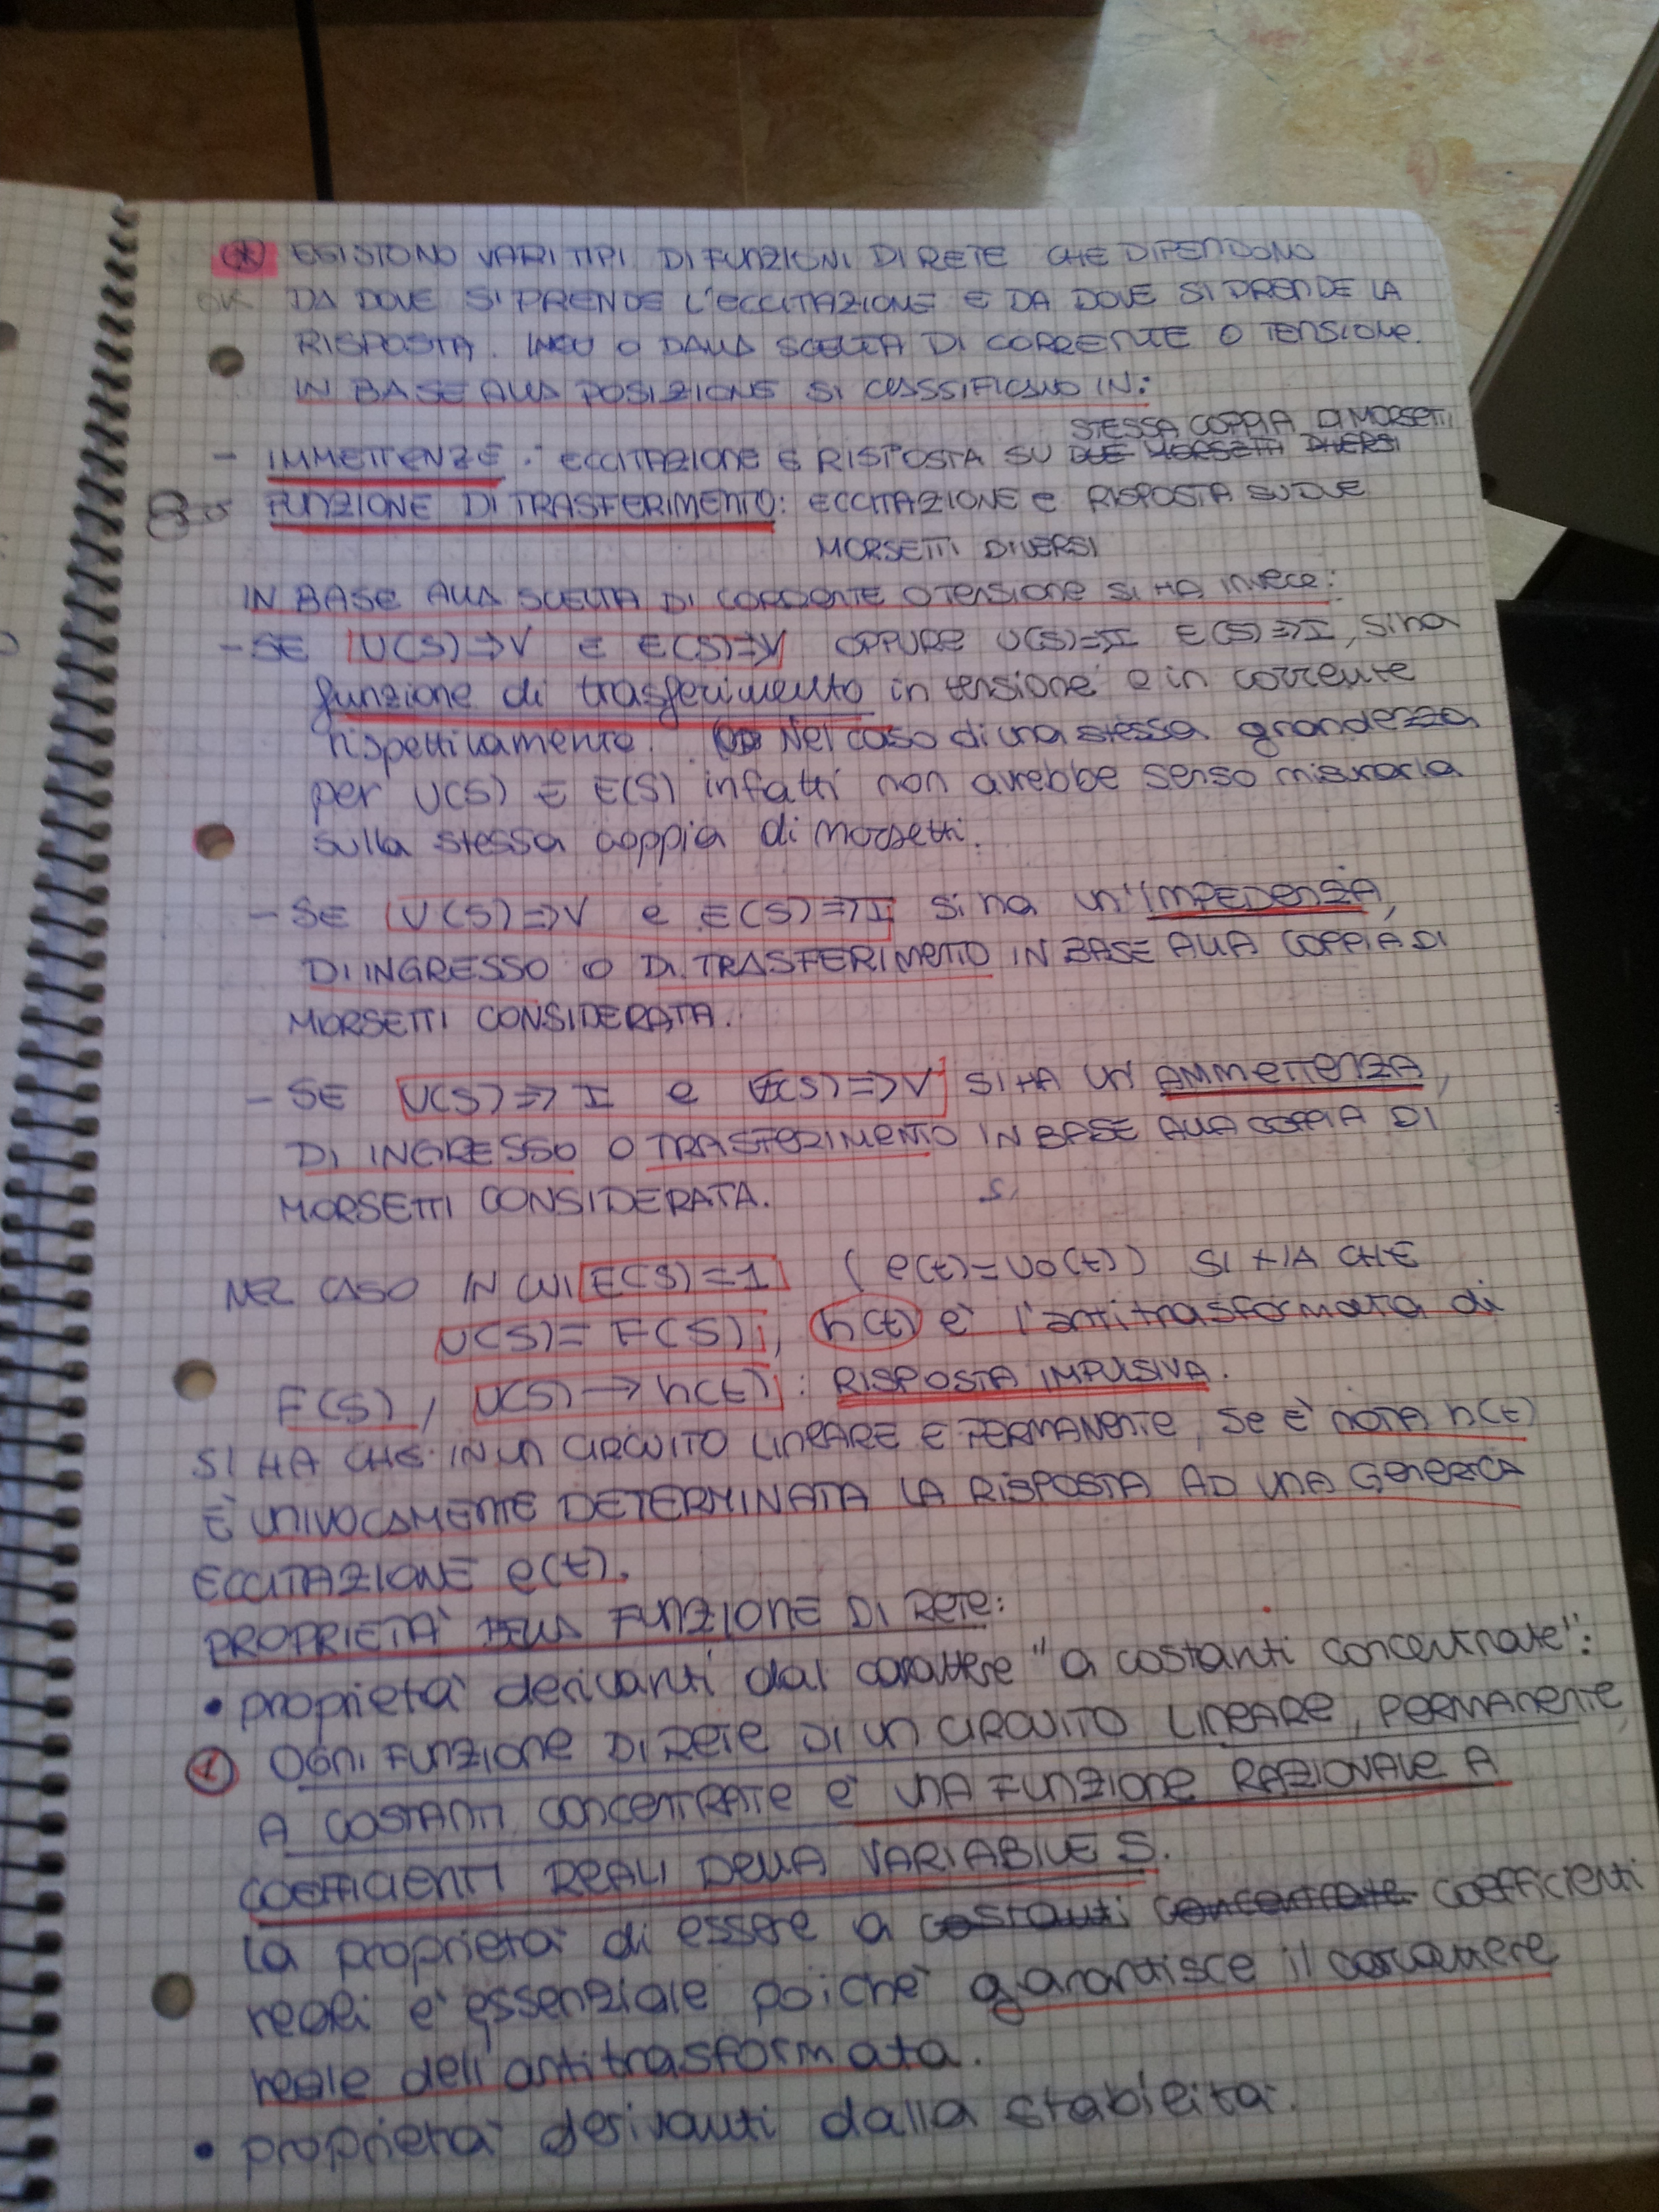 * ESISTONO VARI TIPI DI FUNZIONI DI RETE CHE DIPENDONO
OK DA DOVE SI PRENDE L'ECCITAZIONE E DA DOVE SI PRENDE LA
RISPOSTA. O DALLA SCELTA DI CORRENTE O TENSIONE.
IN BASE ALLA POSIZIONE SI CLASSIFICANO IN:
STESSA COPPIA DI MORSETTI
- IMMETTENZE: ECCITAZIONE E RISPOSTA SU DUE MORSETTI DIVERSI
FUNZIONE DI TRASFERIMENTO: ECCITAZIONE e RISPOSTA SU DUE
MORSETTI DIVERSI
IN BASE ALLA SCELTA DI CORRENTE O TENSIONE SI HA invece:
- SE U(S)=>V E E(S)=>V OPPURE U(S)=>I E(S)=>I, si ha
funzione di trasferimento in tensione e in corrente
rispettivamente. Nel caso di una stessa grandezza
per U(S) E E(S) infatti non avrebbe senso misurarla
sulla stessa coppia di morsetti.
- SE U(S)=>V e E(S)=>I si ha un'IMPEDENZA,
DI INGRESSO O DI TRASFERIMENTO IN BASE ALLA COPPIA DI
MORSETTI CONSIDERATA.
- SE U(S)=>I e E(S)=>V SI HA UN'AMMETTENZA,
DI INGRESSO O TRASFERIMENTO IN BASE ALLA COPPIA DI
MORSETTI CONSIDERATA.
NEL CASO IN CUI E(S)=1 (e(t)=U0(t)) SI HA CHE
U(S)=F(S), h(t) è l'antitrasformata di
F(S), U(S)→h(t): RISPOSTA IMPULSIVA.
SI HA CHE IN UN CIRCUITO LINEARE E PERMANENTE, SE È NOTA h(t)
È UNIVOCAMENTE DETERMINATA LA RISPOSTA AD UNA GENERICA
ECCITAZIONE e(t).
PROPRIETA' DELLA FUNZIONE DI RETE:
• proprietà derivanti dal carattere "a costanti concentrate":
1 OGNI FUNZIONE DI RETE DI UN CIRCUITO LINEARE, PERMANENTE,
A COSTANTI CONCENTRATE è UNA FUNZIONE RAZIONALE A
COEFFICIENTI REALI DELLA VARIABILE S.
La proprietà di essere a costanti concentrate coefficienti
reali è essenziale poichè garantisce il carattere
reale dell'antitrasformata.
• proprietà derivanti dalla stabilità: